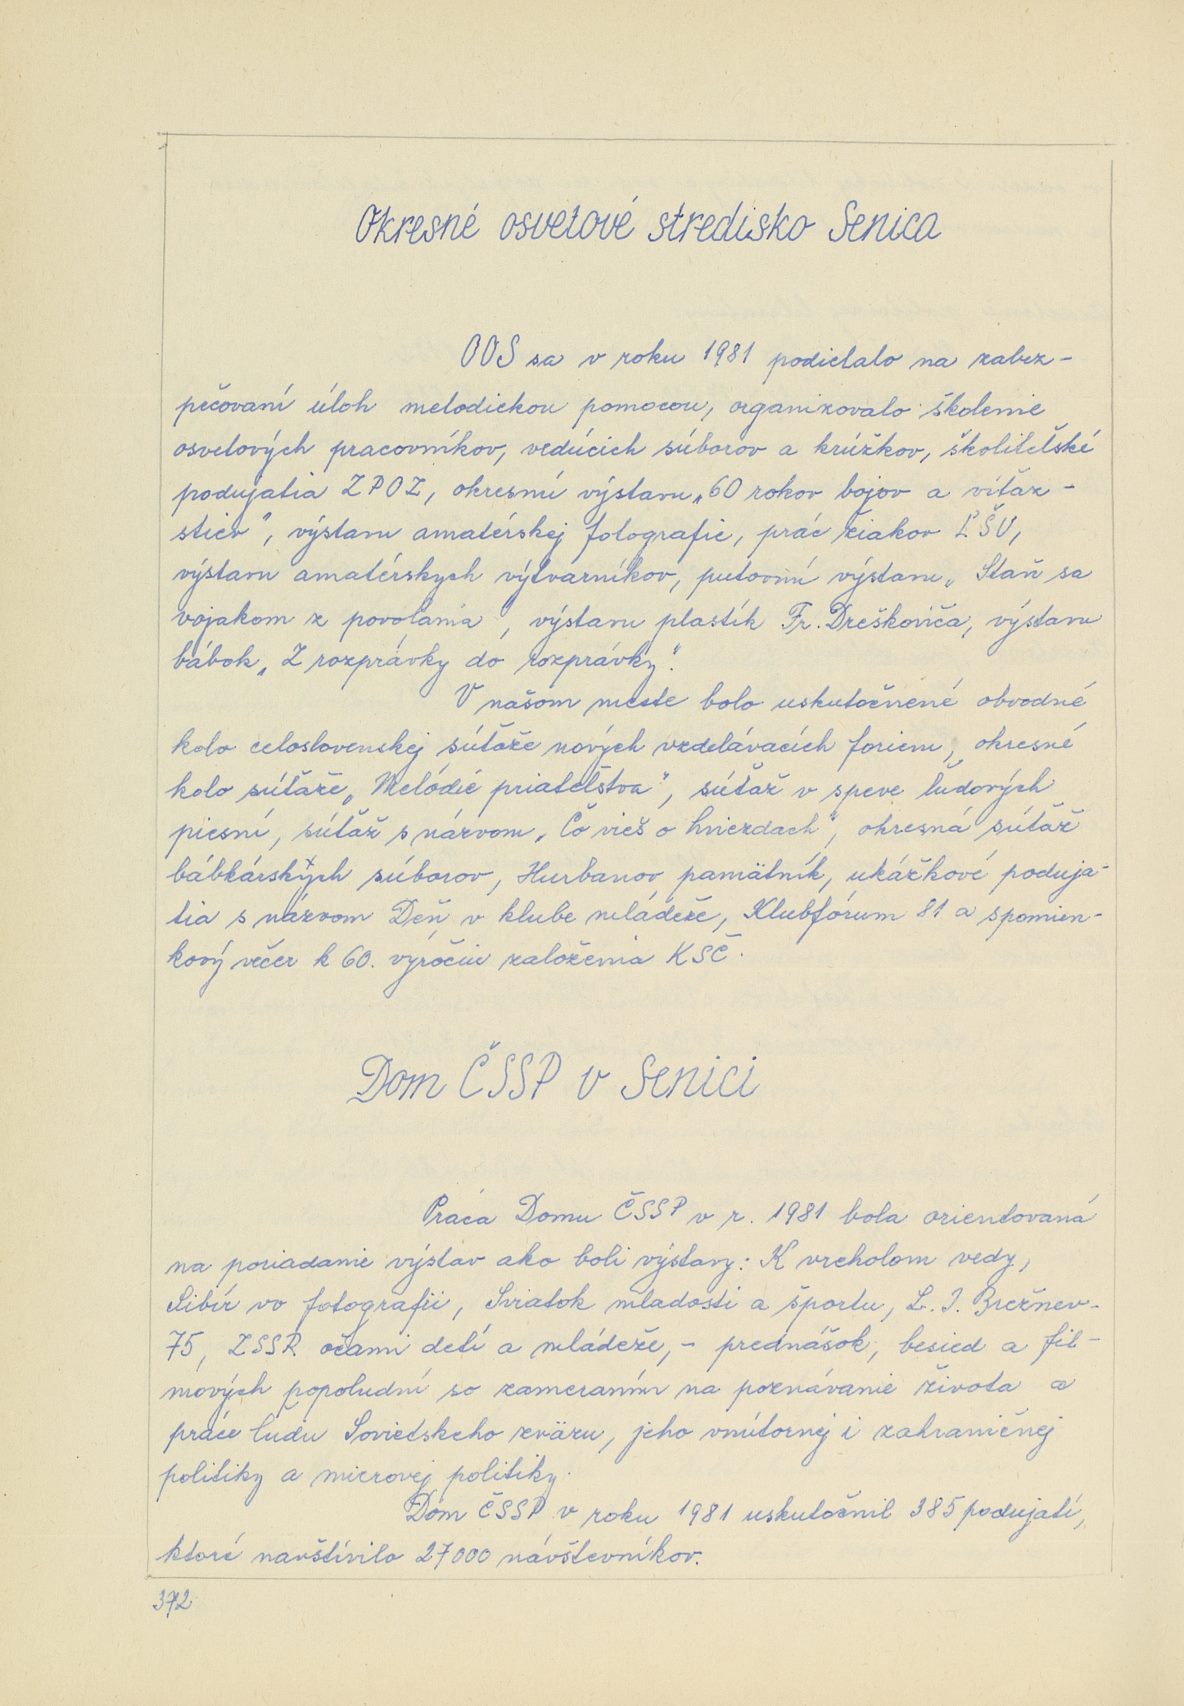 Okresné osvetové stredisko Senica
OOS sa v roku 1981 podieľalo na zabez-
pečovaní úloh metodickou pomocou, organizovalo školenie
osvetových pracovníkov, vedúcich súborov a krúžkov, školiteľské
podujatia ZPOZ, okresnú výstavu „60 rokov bojov a víťaz-
stiev", výstavu amatérskej fotografie, prác žiakov ĽŠU,
výstavu amatérskych výtvarníkov, putovnú výstavu „Staň sa
vojakom z povolania", výstavu plastík Fr. Dreškoviča, výstavu
bábok „Z rozprávky do rozprávky".
V našom meste bolo uskutočnené obvodné
kolo celoslovenskej súťaže nových vzdelávacích foriem, okresné
kolo súťaže „Melódie priateľstva", súťaž v speve ľudových
piesní, súťaž s názvom „Čo vieš o hviezdach", okresná súťaž
bábkárskych súborov, Hurbanov pamätník, ukážkové poduja-
tia s názvom Deň v klube mládeže, Klubfórum 81 a spomien-
kový večer k 60. výročiu založenia KSČ.
Dom ČSSP v Senici
Práca Domu ČSSP v r. 1981 bola orientovaná
na poriadanie výstav ako boli výstavy: K vrcholom vedy,
Sibír vo fotografii, Sviatok mladosti a športu, L. I. Brežnev-
75, ZSSR očami detí a mládeže, - prednášok, besied a fil-
mových popoludní so zameraním na poznávanie života a
práce ľudu Sovietskeho zväzu, jeho vnútornej i zahraničnej
politiky a mierovej politiky.
Dom ČSSP v roku 1981 uskutočnil 385 podujatí,
ktoré navštívilo 27000 návštevníkov.
372